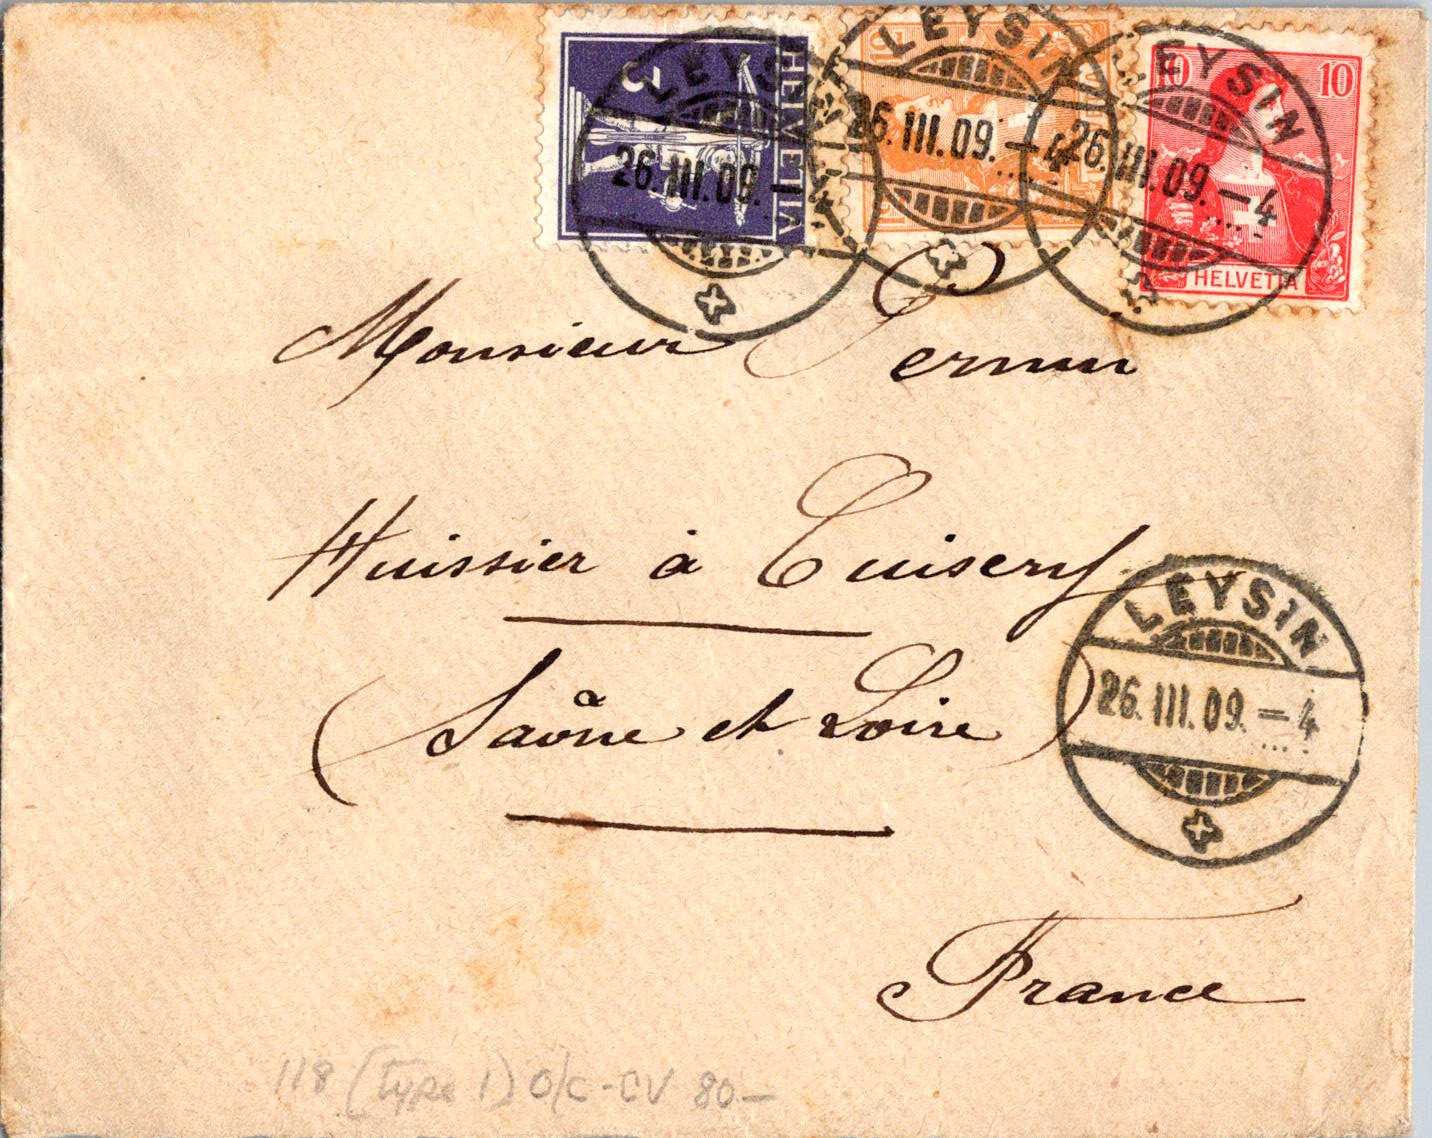 HELVETIA
3
LEYSIN
26.III.09.–
LEYSIN
26.III.09.–4
12
10 10
HELVETIA
LEYSIN
26.III.09.–4
Monsieur
Huissier à Cuisery
(Saône et Loire)
LEYSIN
26.III.09.–4
France
118 (type 1) O/C - CV 80 –